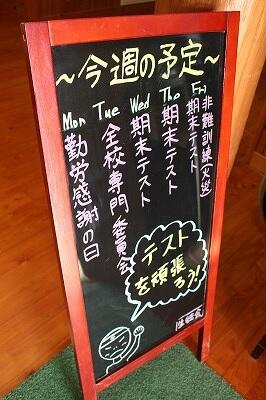 ～今週の予定～
Mon
勤労感謝の日
Tue
全校専門委員会
Wed
期末テスト
Tho
期末テスト
Fri
期末テスト
非難訓練(火災)
テスト
を頑張
ろう!